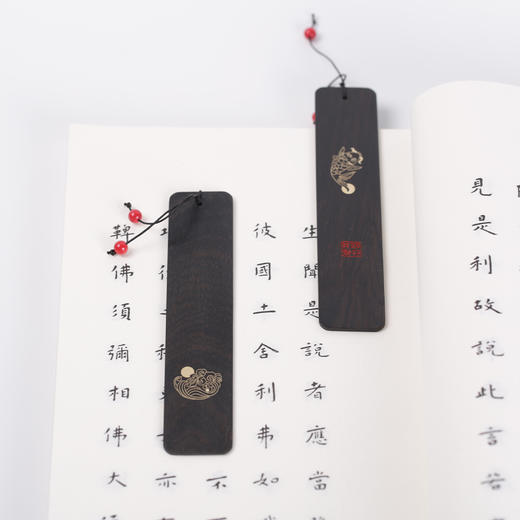 見是利故說此言若
生聞是說者應當
彼國土舍利弗如
不
亦
鞞佛須彌相佛大